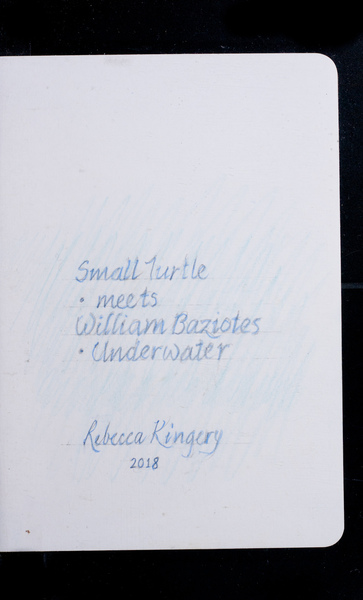 Small Turtle
• meets
William Baziotes
• Underwater
Rebecca Kingery
2018